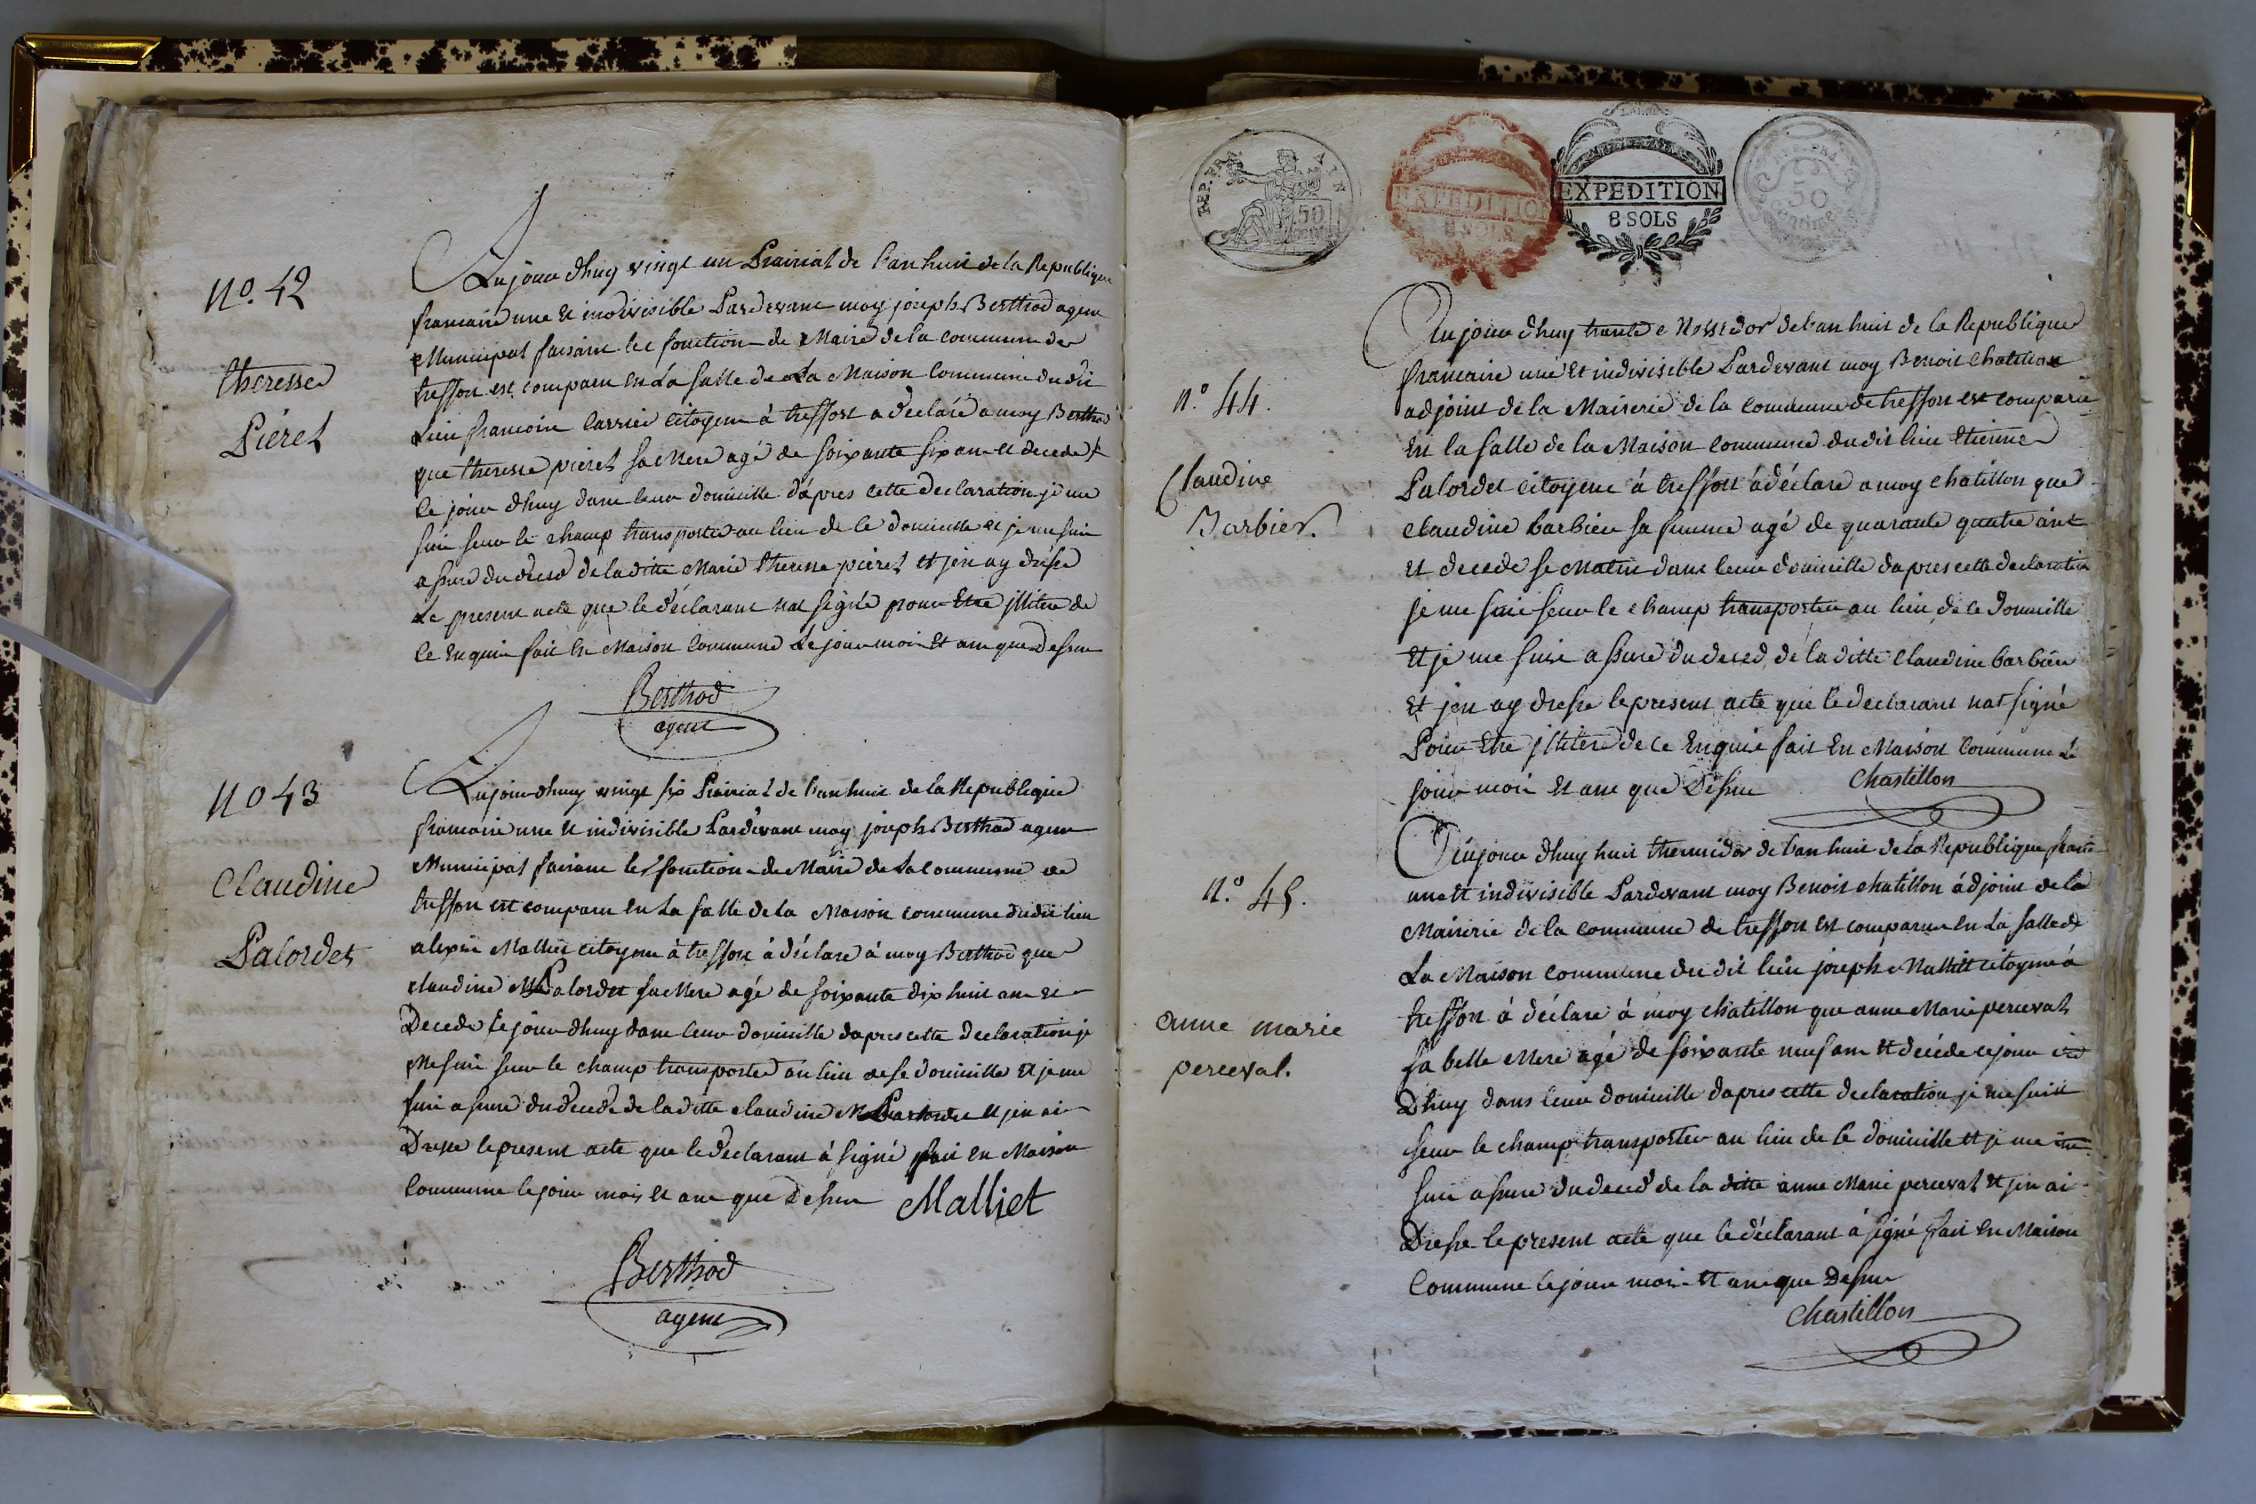 No. 42
theresse
Piéret
Aujourdhuy vingt un Prairial de l'an huit de la Republique
francaise une et indivisible Pardevant moy joseph Berthod agent
Municipal faisant les fonction de Maire de la commune de
treffort est comparu en La salle de La Maison Commune dudit
Lieu francois Carrier Citoyen à treffort a déclaré a moy Berthod
que theresse pieret sa Mere agé de soixante six ans et decedé
ce jour dhuy dans leur domicille d'apres cette declaration je me
suis seur le champ transporter au lieu de ce domicille et je me suis
assuré du décéd de laditte Marie theresse pieret et jen ay dréssé
Le present acte que le déclarant nat signé pour Etre jllitere de
ce Enquis fait En Maison Commune Le jour mois Et an que Dessus
Berthod
agent
No 43
Claudine
Palordet
Aujourdhuy vingt six Prairial de l'an huit de la Republique
francaise une et indivisible Pardevant moy joseph Berthod agent
Municipal faisant les fonction de Maire de La Commune de
treffort est comparu en La salle de la Maison commune dudit lieu
alexis Malliet citoyen à treffort à déclare à moy Berthod que
claudine Palordet sa Mere agé de soixante dix huit ans et
Decedé Ce jour dhuy dans leur domicille dapres cette declaration je
Me suis seur le champ transporter au lieu de se domicille Et je me
suis assuré du décédé de laditte claudine et jen ai
Dresse le present acte que le declarant à signé fait en Maison
Commune le jour mois et an que Dessus Malliet
Berthod
agent
REP. FRA
50
EXPEDITION
8 SOLS
EXPEDITION
8 SOLS
50
Centimes
n.o 44.
Claudine
Barbier.
Aujour dhuy trante Messidor de l'an huit de la Republique
francaise une et indivisible Pardevant moy Benoit Chatillon
adjoint de la Mairerie de la commune de treffort est comparu
En la salle de la Maison Commune dudit lieu Etienne
Palordet citoyent à treffort à déclare a moy chatillon que
claudine barbier sa femme agé de quarante quatre ant
et decede se Matin dans leur domicille dapres cette declaration
je me suis seur le champ transporter au lieu de ce Domicille
Et je me suis assuré du deced de laditte Claudine barbier
Et jen ay dresse le present acte que le declarant nat signé
Pour Etre jllitere de ce Enquis fait En Maison Commune Le
jour moi Et ans que Dessus Chastillon
n.o 45.
anne marie
perceval.
Aujour dhuy huit thermidor de l'an huit de la Republique franc
une et indivisible Pardevant moy Benoit chatillon àdjoint de la
Mairerie de la commune de treffort est comparu en La salle de
La Maison Commune du dit lieu joseph Malliet citoyen à
treffort à déclare à moy chatillon que anne Marie perceval
sa belle Mere agé de soixante neuf ans et décéde ce jour
Dhuy dans leur domicille dapres cette declaration je me suis
seur le champ transporter au lieu de ce domicille et je me
suis assuré du deced de la ditte anne Marie perceval et jen ai
Dresse le present acte que le déclarant à signé fait En Maison
Commune le jour moi et an que Dessus
Chastillon